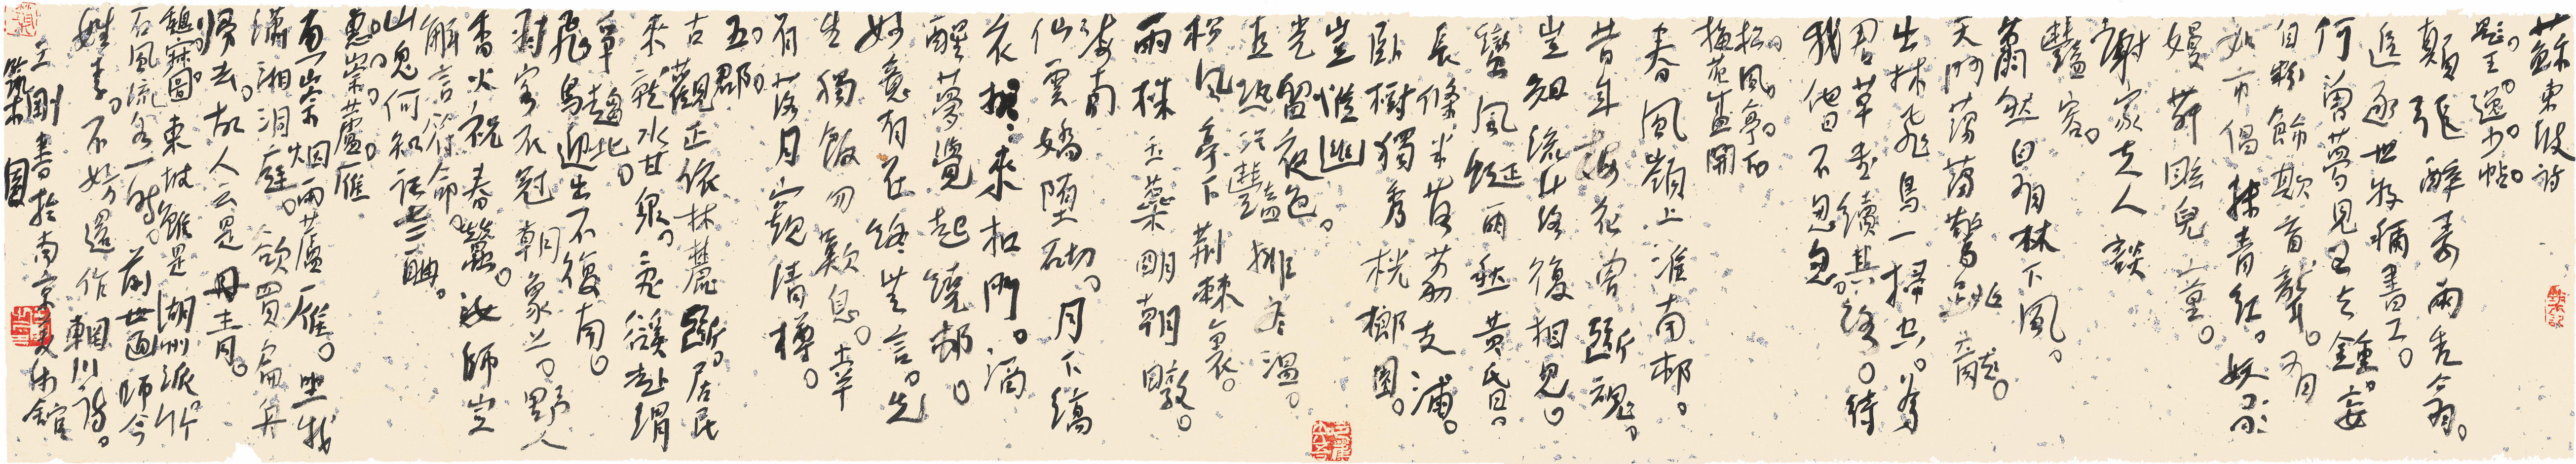 蘇東坡詩
題王逸少帖
顛張醉素兩禿翁。
追逐世好稱書工。
何曾夢見王與鍾。妄
自粉飾欺盲聾。有
如市倡抹青紅。妖歌
嫚舞眩兒童。
謝家夫人談
豐容。
蕭然自有林下風。
天門蕩蕩驚跳龍。
出林飛鳥一掃空。為
君草書續其終。待
我他日不匆匆。
松風亭下
梅花盛開
春風嶺上淮南村。
昔年梅花曾斷魂。
豈知流落復相見。
蠻風蜑雨愁黃昏。
長條半落荔支浦。
臥樹獨秀桄榔園。
豈惟幽
光留夜色。
直恐冷豔排冬溫。
松風亭下荊棘裏。
兩株玉蕊明朝暾。
海南
仙雲嬌墮砌。月下縞
衣來扣門。酒
醒夢覺起繞樹。
妙意有在終無言。先
生獨飲勿歎息。幸
有落月窺清樽。
五郡
古觀正依林麓斷。居民
來就水甘泉。亂溪赴渭
爭趨北。
飛鳥迎山不復南。
羽客衣冠朝象上。野人
香火祝春蠶。汝師豈
解言符命。
山鬼何知託老聃。
惠崇蘆雁
惠崇烟雨蘆雁。坐我
瀟湘洞庭。欲買扁舟
歸去。故人云是丹青。
憩寂圖東坡雖是湖州派。竹
石風流各一時。前世画師今
姓李。不妨還作輞川詩。
王剛書於南京美術館